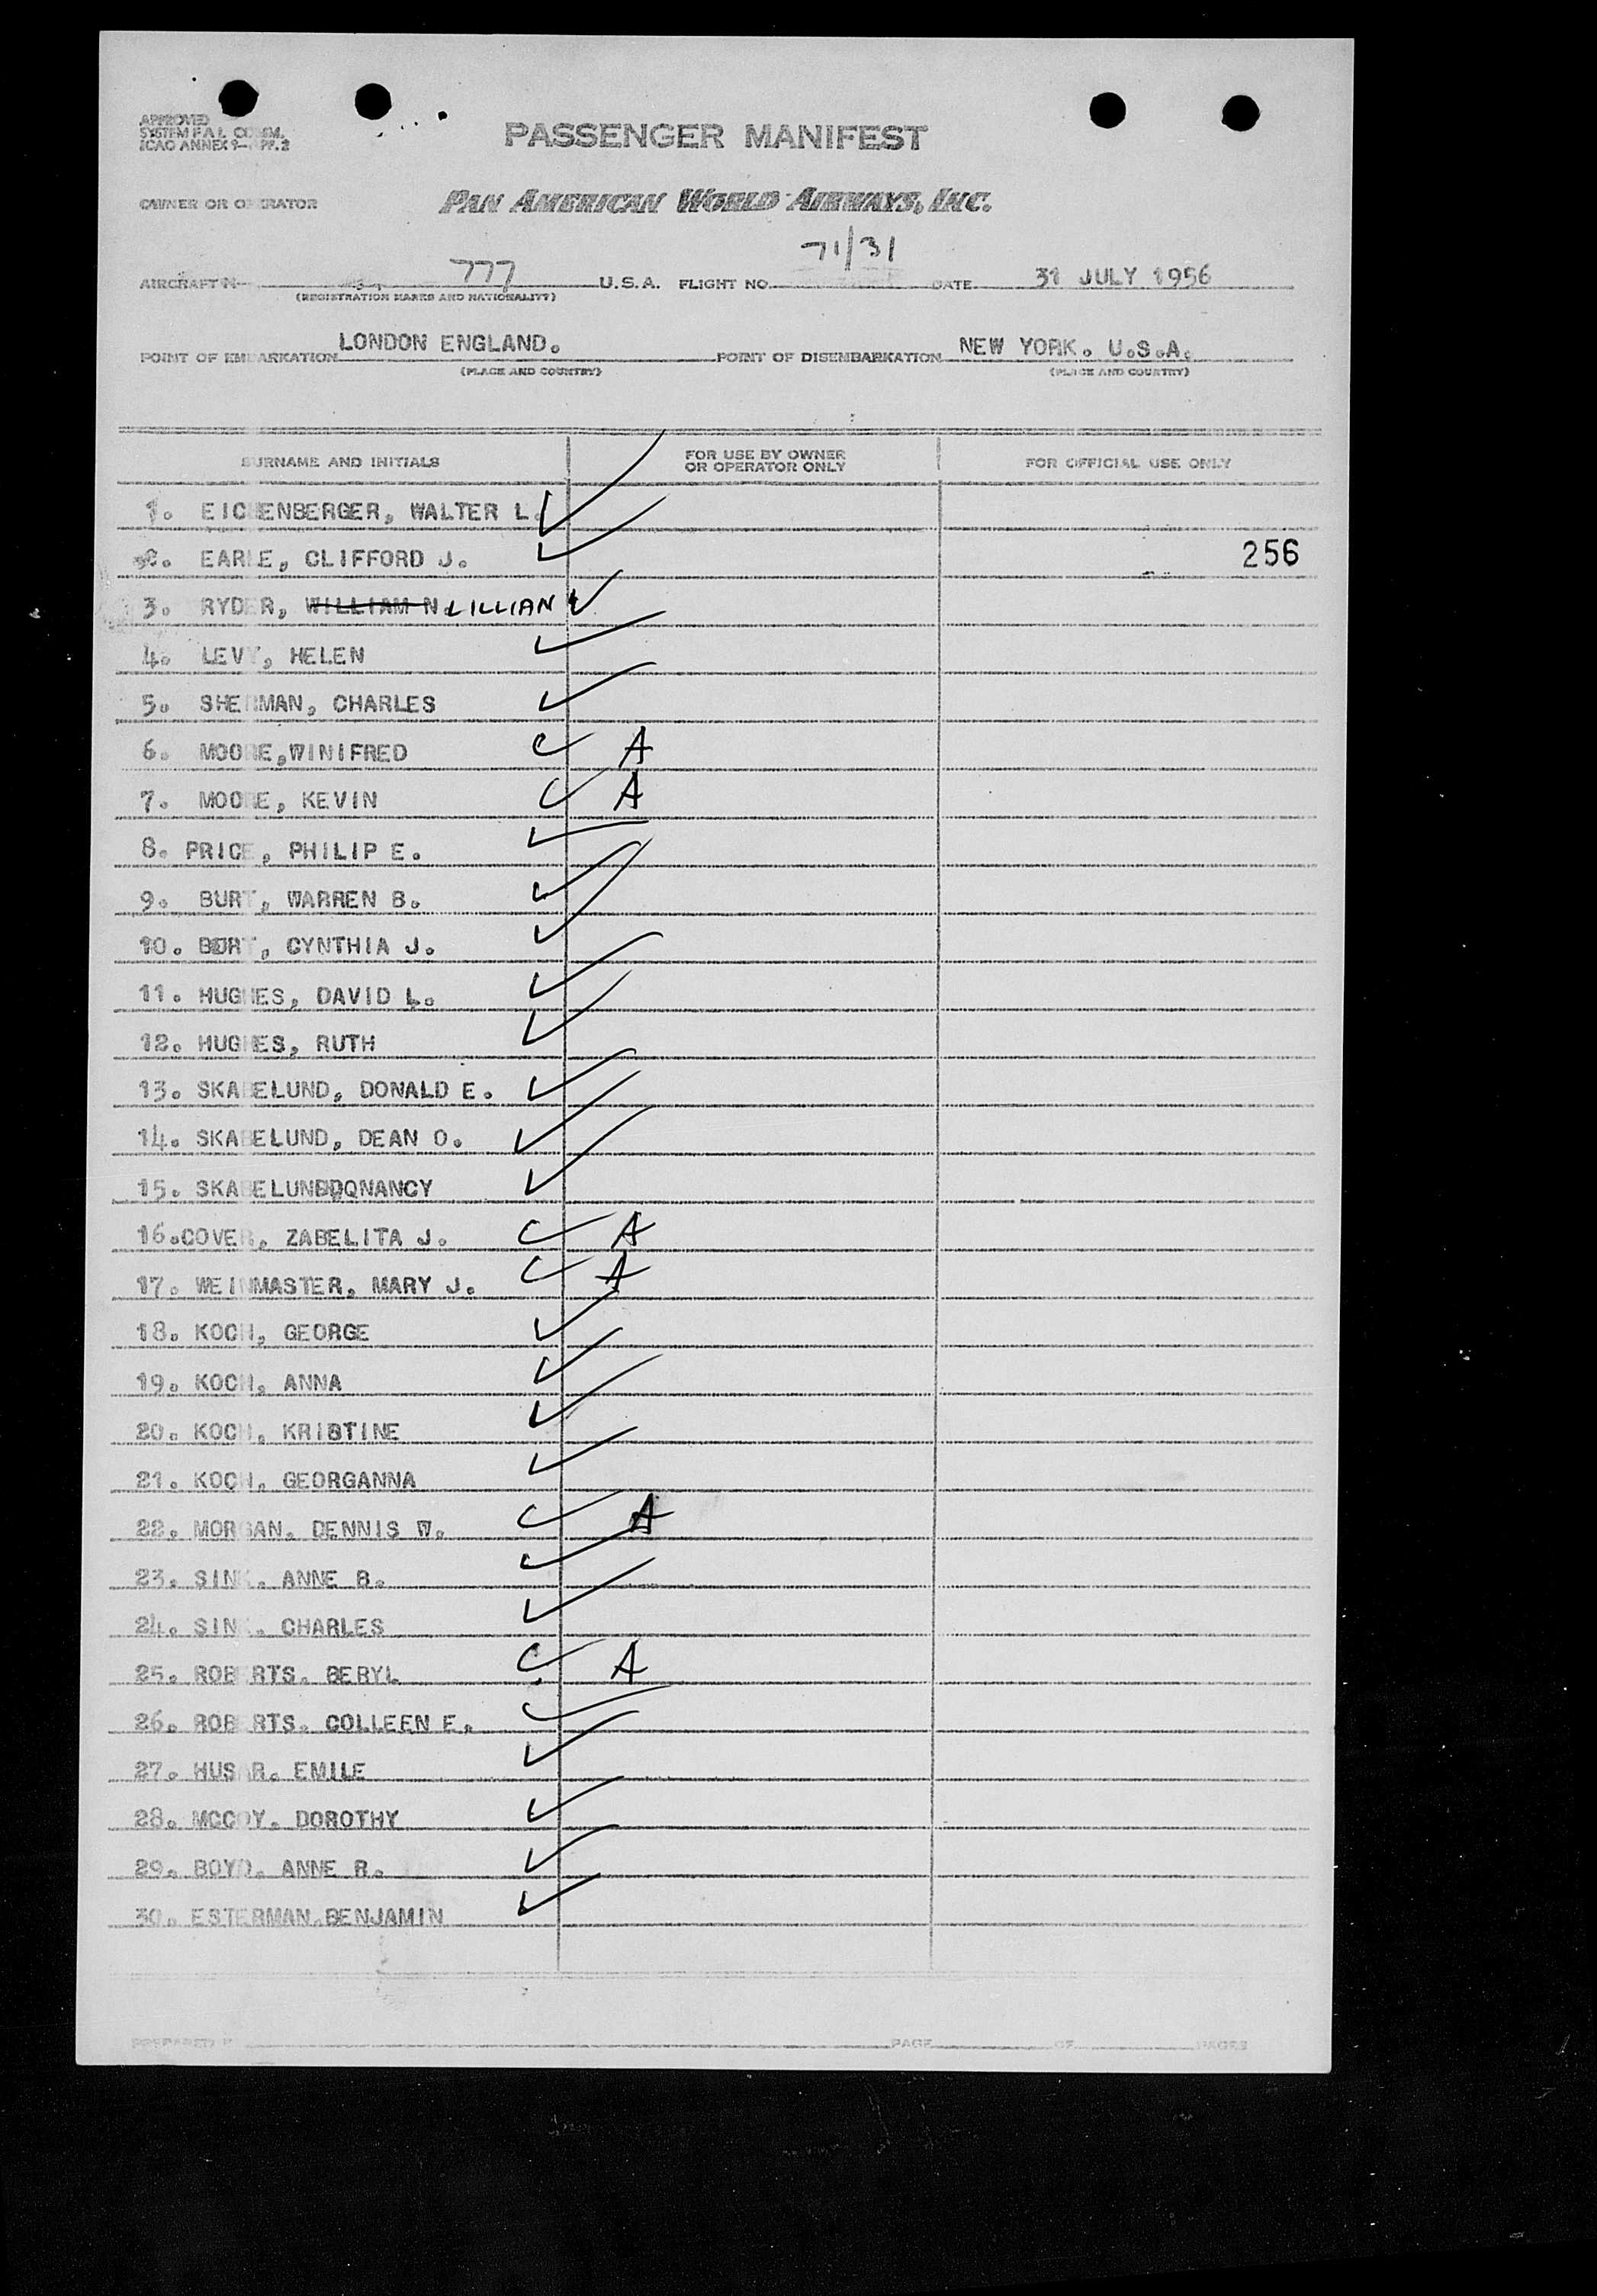 APPROVED
SYSTEM F.A.L. COMM.
ICAO ANNEX 9-APP.2
PASSENGER MANIFEST
OWNER OR OPERATOR PAN AMERICAN WORLD AIRWAYS, INC.
71/31
AIRCRAFT N- 777 U.S.A. FLIGHT NO. DATE 31 JULY 1956
(REGISTRATION MARKS AND NATIONALITY)
POINT OF EMBARKATION LONDON ENGLAND. POINT OF DISEMBARKATION NEW YORK. U.S.A.
(PLACE AND COUNTRY) (PLACE AND COUNTRY)
SURNAME AND INITIALS FOR USE BY OWNER OR OPERATOR ONLY FOR OFFICIAL USE ONLY
1. EICHENBERGER, WALTER L.
2. EARLE, CLIFFORD J. 256
3. RYDER, WILLIAM N. LILLIAN
4. LEVY, HELEN
5. SHERMAN, CHARLES
6. MOORE,WINIFRED A
7. MOORE, KEVIN A
8. PRICE, PHILIP E.
9. BURT, WARREN B.
10. BURT, CYNTHIA J.
11. HUGHES, DAVID L.
12. HUGHES, RUTH
13. SKABELUND, DONALD E.
14. SKABELUND, DEAN O.
15. SKABELUND NANCY
16.COVER, ZABELITA J. A
17. WEINMASTER, MARY J. A
18. KOCH, GEORGE
19. KOCH, ANNA
20. KOCH, KRISTINE
21. KOCH, GEORGANNA
22. MORGAN, DENNIS W. A
23. SINK, ANNE B.
24. SINK, CHARLES
25. ROBERTS, BERYL A
26. ROBERTS, COLLEEN E.
27. HUSAR, EMILE
28. MCCOY, DOROTHY
29. BOYD, ANNE R.
30. ESTERMAN,BENJAMIN
PREPARED BY PAGE OF PAGES